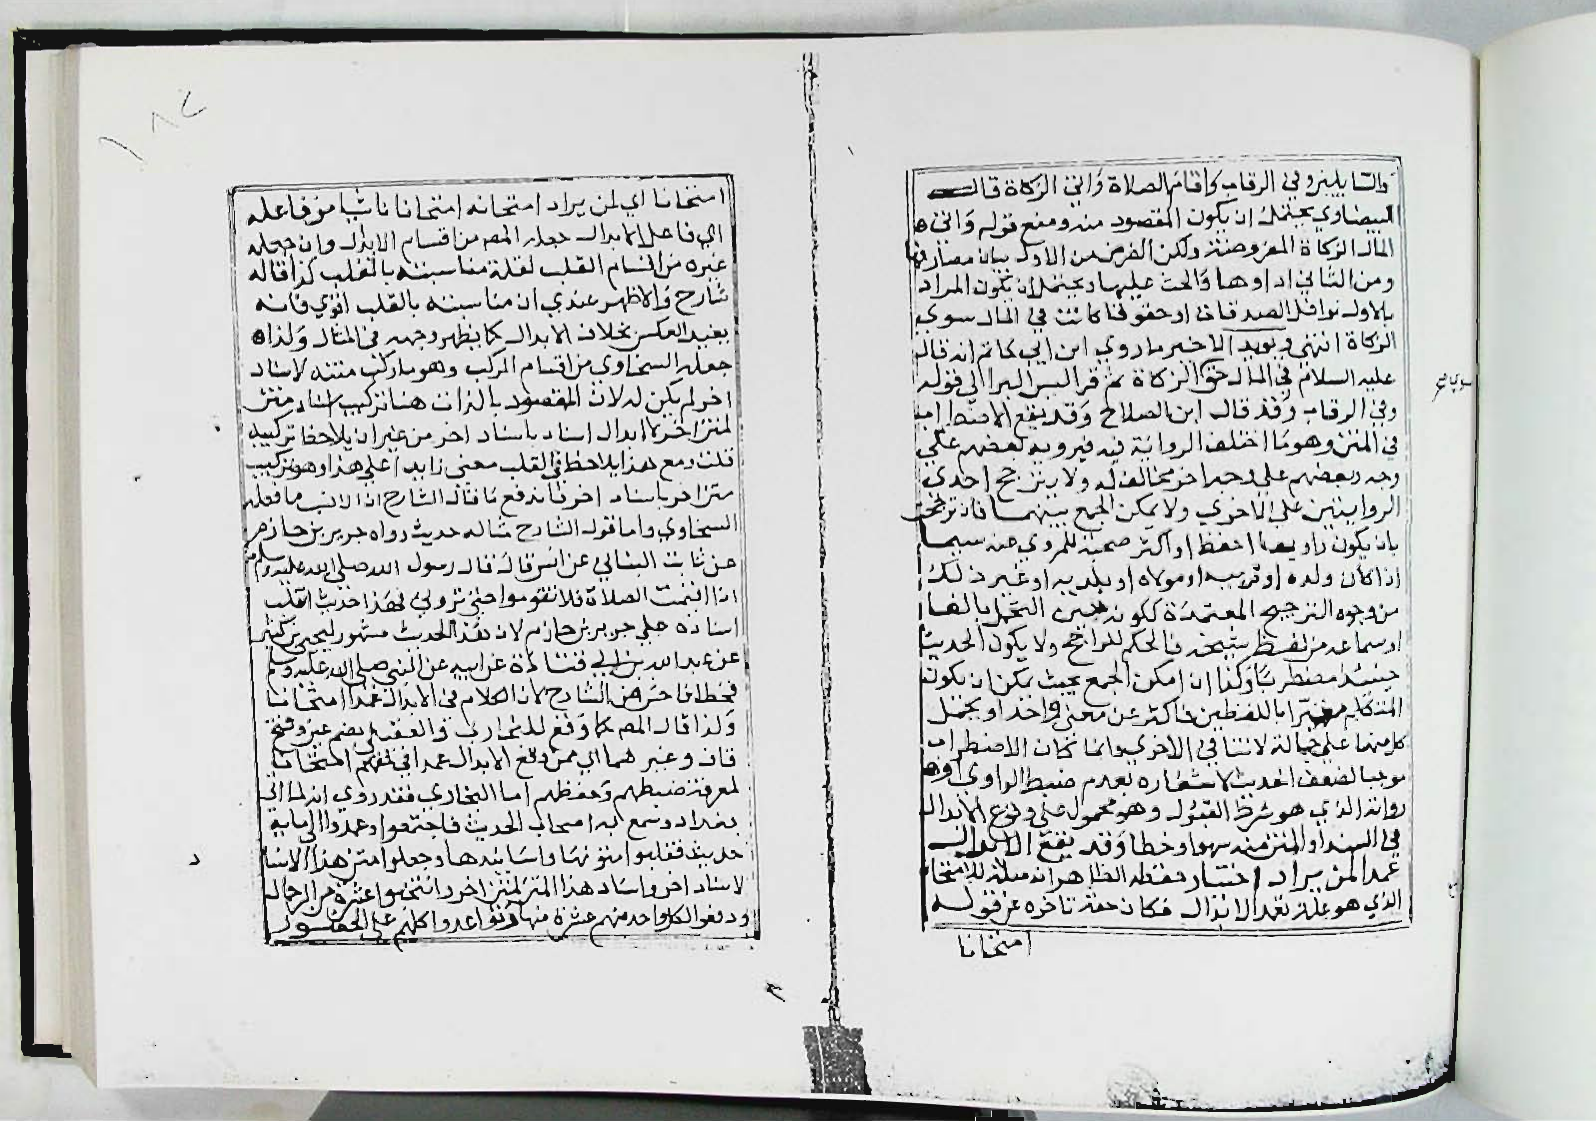 والسايلين وفي الرقاب واقام الصلاة واتى الزكاة قال
البيضاوي يحتمل ان يكون المقصود منه ومنع قوله واتى
المال الزكاة المفروضة ولكن الغرض من الاول بيان مصارفها
ومن الثاني اداوها والحث عليها ويحتمل ان يكون المراد
بالاول نوافل الصدقات او حقوقا كانت في المال سوى
الزكاة انتهى ويويد الاخير ما روي ابن ابي حاتم انه قال
عليه السلام في المال حق سوى الزكاة ثم قرا ليس البر الى قوله
وفي الرقاب وقد قال ابن الصلاح وقد يقع الاضطراب
في المتن وهو ما اختلف الرواية فيه فيرويه بعضهم على
وجه وبعضهم على وجه اخر مخالف له ولا يترجح احدى
الروايتين على الاخرى ولا يمكن الجمع بينهما فان ترجحت
بان يكون راويها احفظ او اكثر صحبة للمروي عنه سيما
اذا كان ولده او قريبه او مولاه او بلديه او غير ذلك
من وجوه الترجيح المعتمدة ككونه حين التحمل بالغا
او سماعه من لفظ شيخه فالحكم للراجح ولا يكون الحديث
حينئذ مضطربا وكذا ان امكن الجمع بحيث يمكن ان يكون
المتكلم معبرا باللفظين فاكثر عن معنى واحد او يحمل
كل منهما على حالة لا تنافي الاخرى وانما كان الاضطراب
موجبا لضعف الحديث لاشعاره بعدم ضبط الراوي او
رواته الذي هو شرط القبول وهو محمول على وقوع الابدال
في السند او المتن منه سهوا وخطا وقد يقع الابدال
عمدا لمن يراد اختبار حفظه الظاهر انه صلة للامتحان
الذي هو علة تعمد الابدال فكان حقه تاخره عن قوله
امتحانا
١٨٤
امتحانا اي لمن يراد امتحانه امتحانا ناشيا من فاعله
اي فاعل الابدال جعله المص من اقسام الابدال وان جعله
غيره من اقسام القلب لقلة مناسبته بالقلب كذا قاله
شارح والاظهر عندي ان مناسبته بالقلب اقوى فانه
يفيد العكس بخلاف الابدال كما يظهر وجهه في المثال ولذا
جعله السخاوي من اقسام المركب وهو ما ركب متنه لاسناد
اخر لم يكن له لان المقصود بالذات هنا تركيب اسناد متن
لمتن اخر لا ابدال اسناد باسناد اخر من غير ان يلاحظ تركيبه
قلت ومع هذا يلاحظ في القلب معنى زايدا على هذا وهو تركيب
متن اخر باسناد اخر فاندفع ما قال الشارح اذا الانسب ما فعله
السخاوي واما قول الشارح مثاله حديث رواه جرير بن حازم
عن ثابت البناني عن انس قال قال رسول الله صلى الله عليه وسلم
اذا اقيمت الصلاة فلا تقوموا حتى تروني فهذا حديث انقلب
اسناده على جرير بن حازم لان هذا الحديث مشهور ليحيى بن كثير
عن عبد الله بن ابي قتادة عن ابيه عن النبي صلى الله عليه وسلم
فخطا فاحش من الشارح لان الكلام في الابدال عمدا امتحانا
ولذا قال المص كما وقع للبخاري والعقيلي بضم عين وفتح
قاف وغيرهما اي ممن وقع الابدال عمدا في حقهم امتحانا
لمعرفة ضبطهم وحفظهم اما البخاري فقد روي انه لما اتى
بغداد وسمع به اصحاب الحديث فاجتمعوا وعمدوا الى ماية
حديث فقلبوا متونها واسانيدها وجعلوا متن هذا الاسناد
لاسناد اخر واسناد هذا المتن لمتن اخر وانتخبوا عشرة من الرجال
ودفعوا لكل واحد منهم عشرة منها وتواعدوا كلهم على الحضور